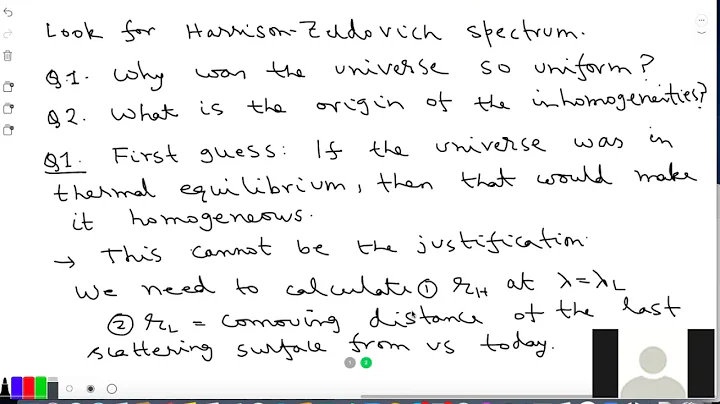 Look for Harrison-Zeldovich spectrum.
Q.1. Why was the universe so uniform?
Q2. What is the origin of the inhomogeneities?
Q1. First guess: If the universe was in
thermal equilibrium, then that would make
it homogeneous.
→ This cannot be the justification.
We need to calculate ① r_H at λ=λ_L
② r_L = comoving distance of the last
scattering surface from us today.
1 2